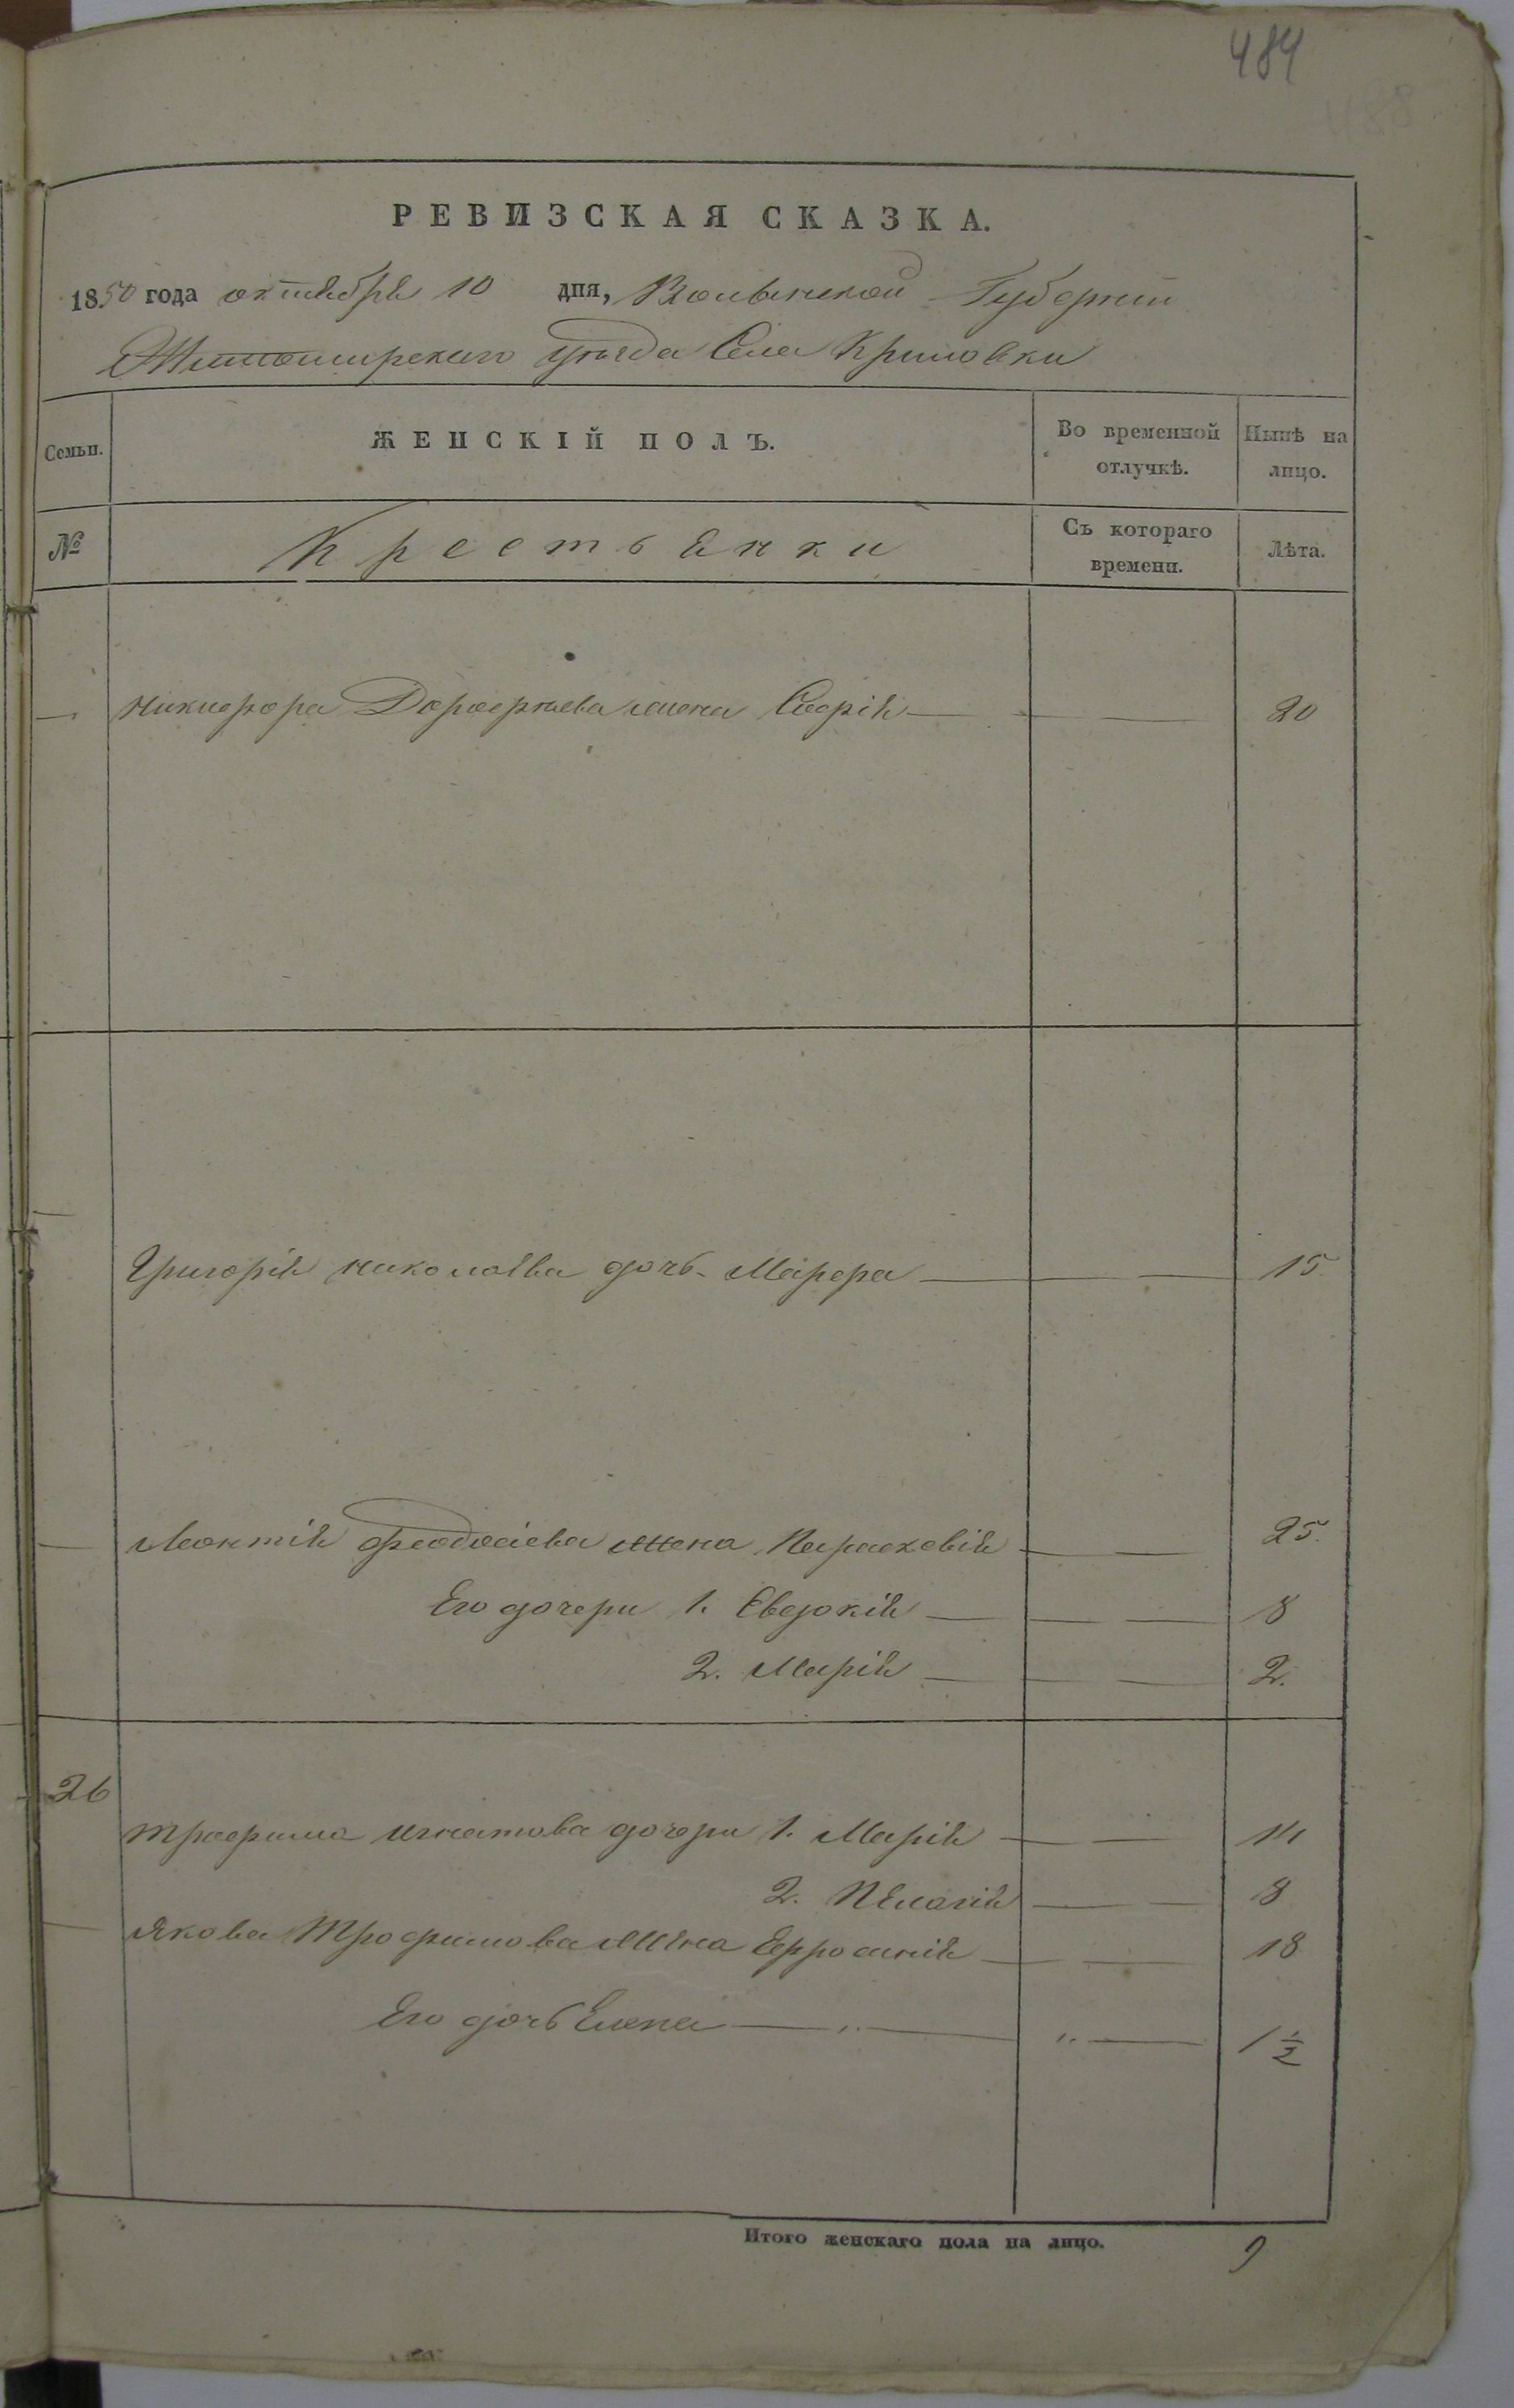 484
488
РЕВИЗСКАЯ СКАЗКА.
1850 года октября 10 дня, Волынской Губернии
Житомирскаго уѣзда Села Криловки
Семьи.
ЖЕНСКІЙ ПОЛЪ.
Во временной отлучкѣ.
Нынѣ на лицо.
№
Крестьянки
Съ котораго времени.
Лѣта.
— Никифора Дорофѣева жена Софія — — 20
Григорія Николаева дочь Марфа — — 15
— Леонтія Феодосіева жена Параскевія — — 25.
Его дочери 1. Евдокія — — — 8
2. Марія — — — 2.
26
Трофима Игнатова дочери 1. Марія — — 14
2. Пелагія — — 8
— Якова Трофимова жена Ефросинія — — 18
Его дочь Елена — „ — „ — 1 1/2
Итого женскаго пола на лицо. 9